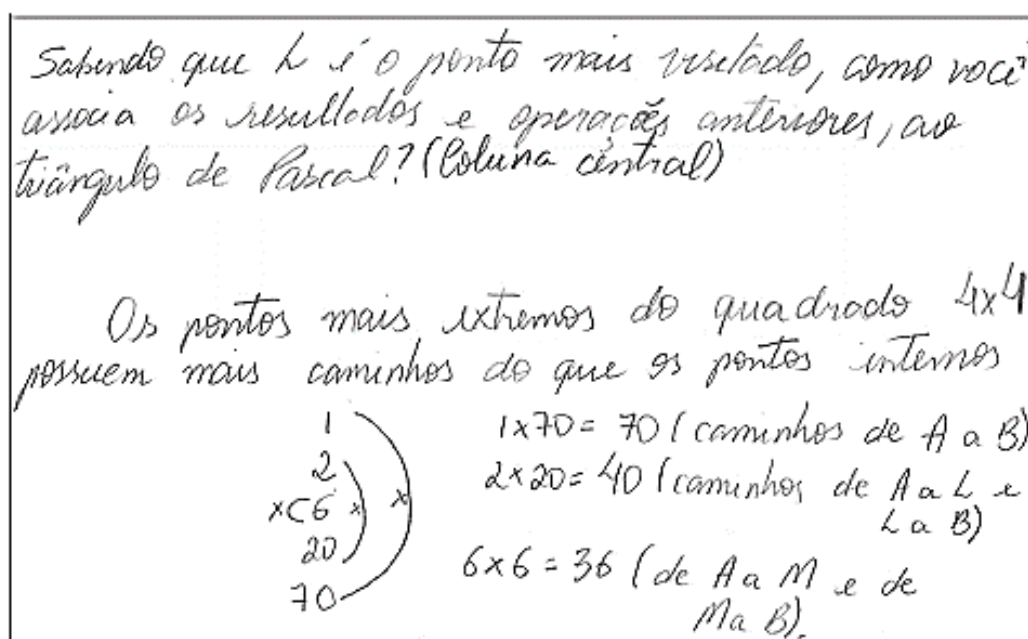 Sabendo que L é o ponto mais visitado, como você
associa os resultados e operações anteriores, ao
triângulo de Pascal? (Coluna central)
Os pontos mais extremos do quadrado 4x4
possuem mais caminhos do que os pontos internos
1
2
x 6 x x
20
70
1x70 = 70 (caminhos de A a B)
2x20 = 40 (caminhos de A a L e
L a B)
6x6 = 36 (de A a M e de
M a B).